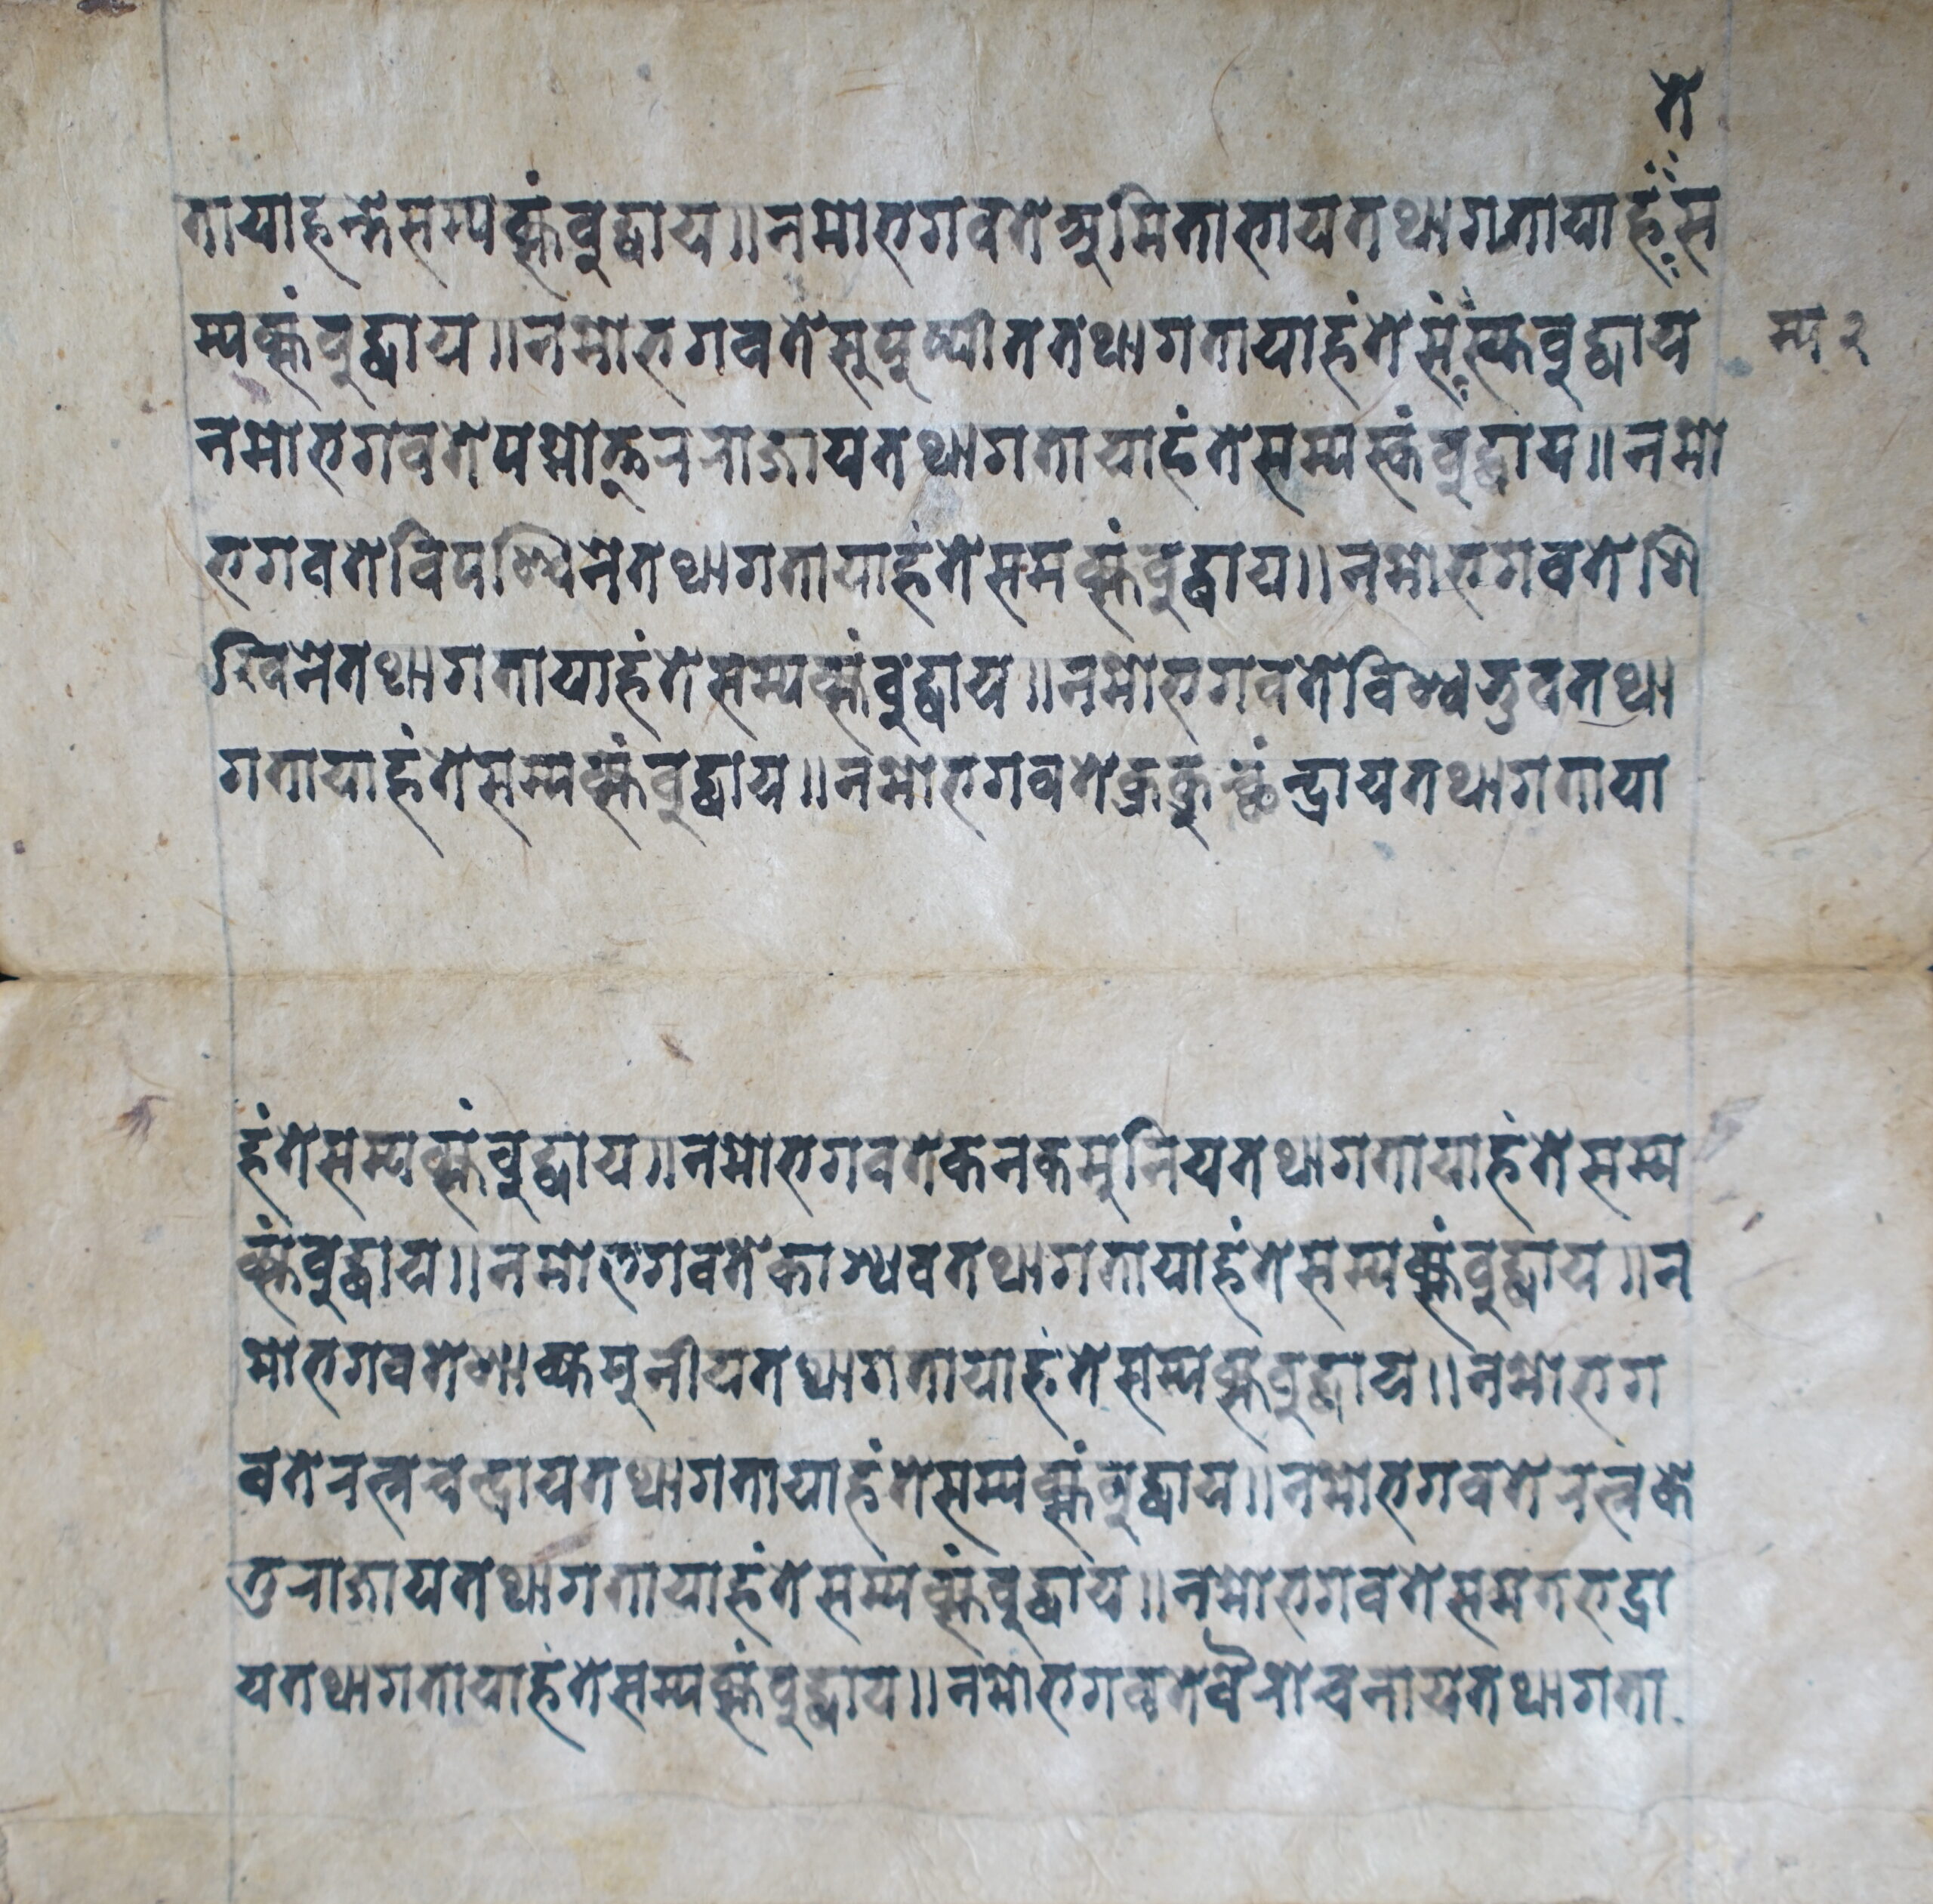 ते
तायाहन्तेसम्यक्संबुद्धाय॥नमोभगवतेअमिताभायतथागतायार्हंस
म्यक्संबुद्धाय॥नमोभगवतेसुपुष्पीततथागतायार्हंतेसंस्कबुद्धाय म्य २
नमोभगवतेपद्मोत्तुरराजायतथागतायार्हंतेसम्यस्कंबुद्धाय॥नमो
भगवतेविपश्यिनेतथागतायार्हंतेसमक्संबुद्धाय॥नमोभगवतेशि
खिनेतथागतायार्हंतेसम्यक्संबुद्धाय॥नमोभगवतेविश्वभुवतथा
गतायार्हंतेसम्यक्संबुद्धाय॥नमोभगवतेक्रकुच्छंन्द्रायतथागताया
र्हंतेसम्यक्संबुद्धाय॥नमोभगवतेकनकमुनियतथागतायार्हंतेसम्य
क्संबुद्धाय॥नमोभगवतेकाश्यवतथागतायार्हंतेसम्यक्संबुद्धाय॥न
मोभगवतेशाक्यमुनीयतथागतायार्हंतेसम्यक्सबुद्धाय॥नमोभग
वतेरत्नचन्द्रायतथागतायार्हंतेसम्यक्संबुद्धाय॥नमोभगवतेरत्नके
तुराजायतथागतायार्हंतेसम्यक्संबुद्धाय॥नमोभगवतेसमतभद्रा
यतथागतायार्हंतेसम्यक्संबुद्धाय॥नमोभगवतेवैरोचनायतथागता